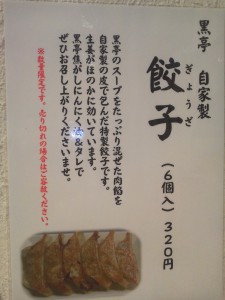 黒亭 自家製
餃子
ぎょうざ
(6個入) 320円
黒亭のスープをたっぷり混ぜた肉餡を
自家製の皮で包んだ特製餃子です。
生姜がほのかに効いています。
黒亭焦がしにんにく油&タレで
ぜひお召し上がりくださいませ。
※数量限定です。売り切れの場合はご容赦ください。